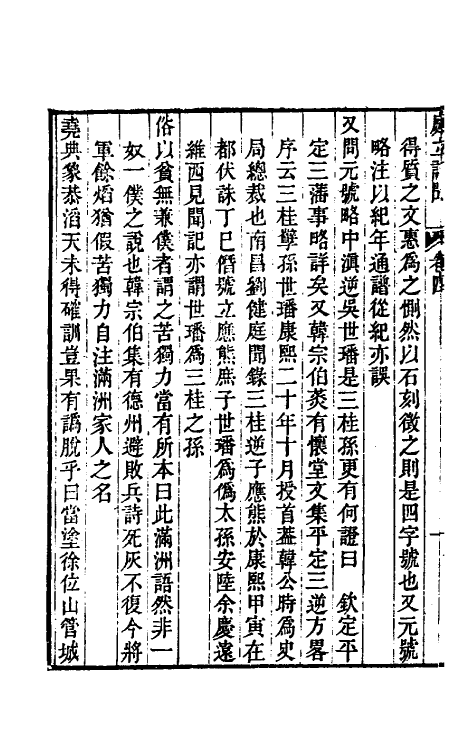 得質之文惠為之惻然以石刻徵之則是四字號也又元號
略注以紀年通譜從紀亦誤
又問元號略中滇逆吳世璠是三桂孫更有何證曰　欽定平
定三藩事略詳矣又韓宗伯菼有懷堂文集平定三逆方畧
序云三桂孽孫世璠康熙二十年十月授首蓋韓公時為史
局總裁也南昌劉健庭聞錄三桂逆子應熊於康熙甲寅在
都伏誅丁巳僭號立應熊庶子世璠為偽太孫安陸余慶遠
維西見聞記亦謂世璠為三桂之孫
俗以貧無兼僕者謂之苦獨力當有所本曰此滿洲語然非一
奴一僕之說也韓宗伯集有德州避敗兵詩死灰不復今將
軍餘熖猶假苦獨力自注滿洲家人之名
堯典象恭滔天未得確訓豈果有譌脫乎曰當塗徐位山管城
卷四